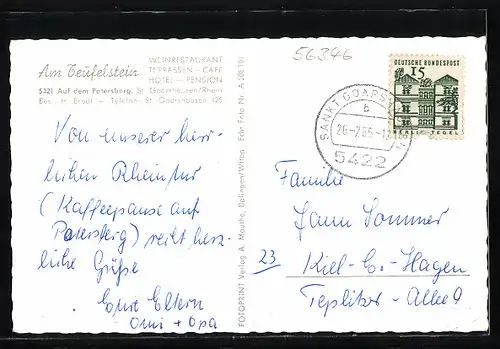 Am Teufelstein
WEINRESTAURANT
TERRASSEN - CAFE
HOTEL - PENSION
5421 Auf dem Petersberg, St. Goarshausen/Rhein
Bes. H. Braat - Telefon: St. Goarshausen 425
Von unserer herr-
lichen Rheintur
(Kaffeepause auf
Petersberg) recht herz-
liche Grüße
Eure Eltern
Omi + Opa
FOTOPRINT Verlag A. Mauthe, Datingen/Wittlg.
Edr Foto Nr. A
56346
DEUTSCHE BUNDESPOST
15
BERLIN-TEGEL
SANKT GOARSHAUSEN
b
26.-7.65-17
5422
Familie
Jann Sommer
23 Kiel-Ho.-Hagen
Teplitzer-Allee 9